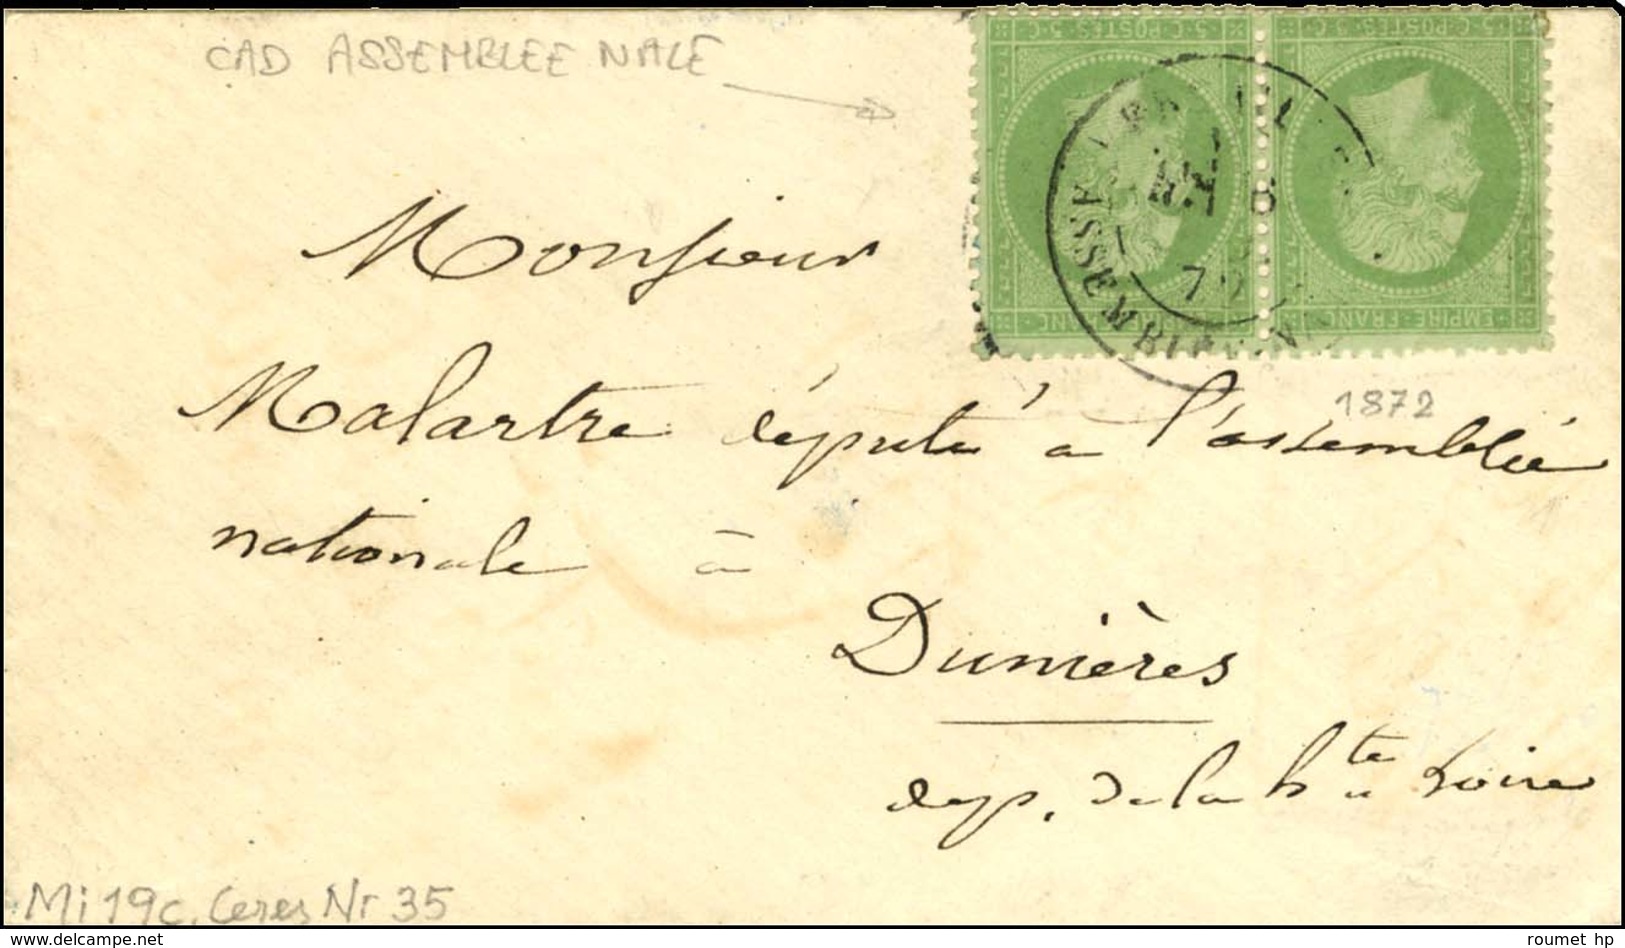 CAD ASSEMBLEE NALE
5·C·POSTES·5·C
5·C·POSTES·5·C
VERSAILLES
ASSEMBLEE N
EMPIRE FRANC
EMPIRE·FRANC
1872
Monsieur
Malartre député à l'assemblée
nationale à
Dunières
dep. de la hte Loire
Mi 19c, Ceres Nr 35
www.delcampe.net
roumet hp